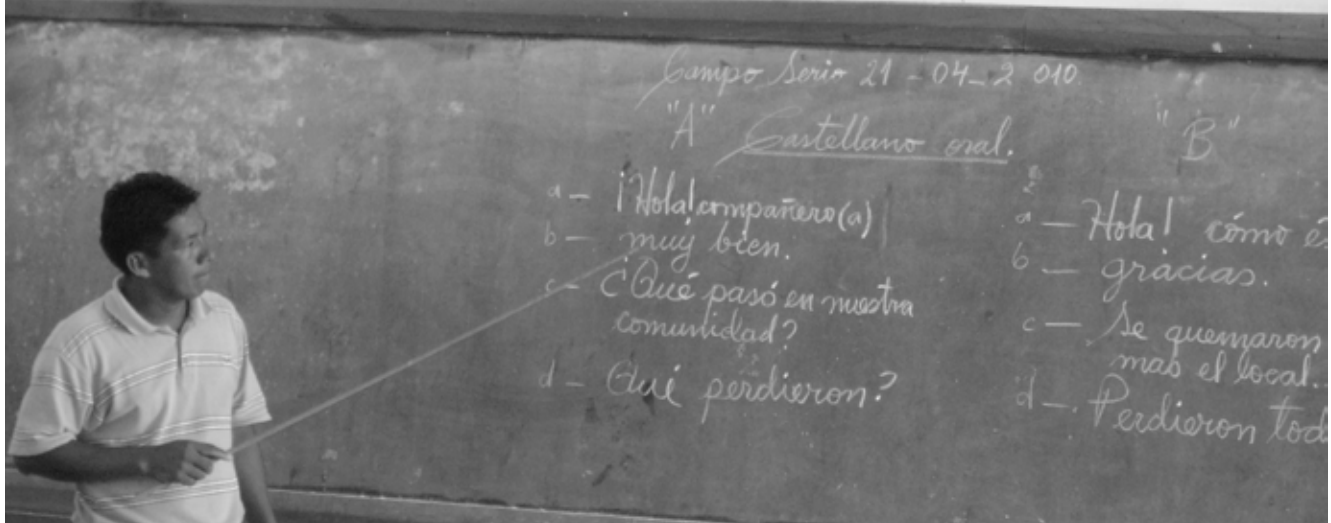 Campo Serio 21 - 04_2 010.
"A" Castellano oral. "B"
a - ¡Hola! compañero(a)
b - muy bien.
c - ¿Qué pasó en nuestra
comunidad?
d - Qué perdieron?
a - Hola! cómo és
b - gracias.
c - Se quemaron
mas el local.
d -. Perdieron tod